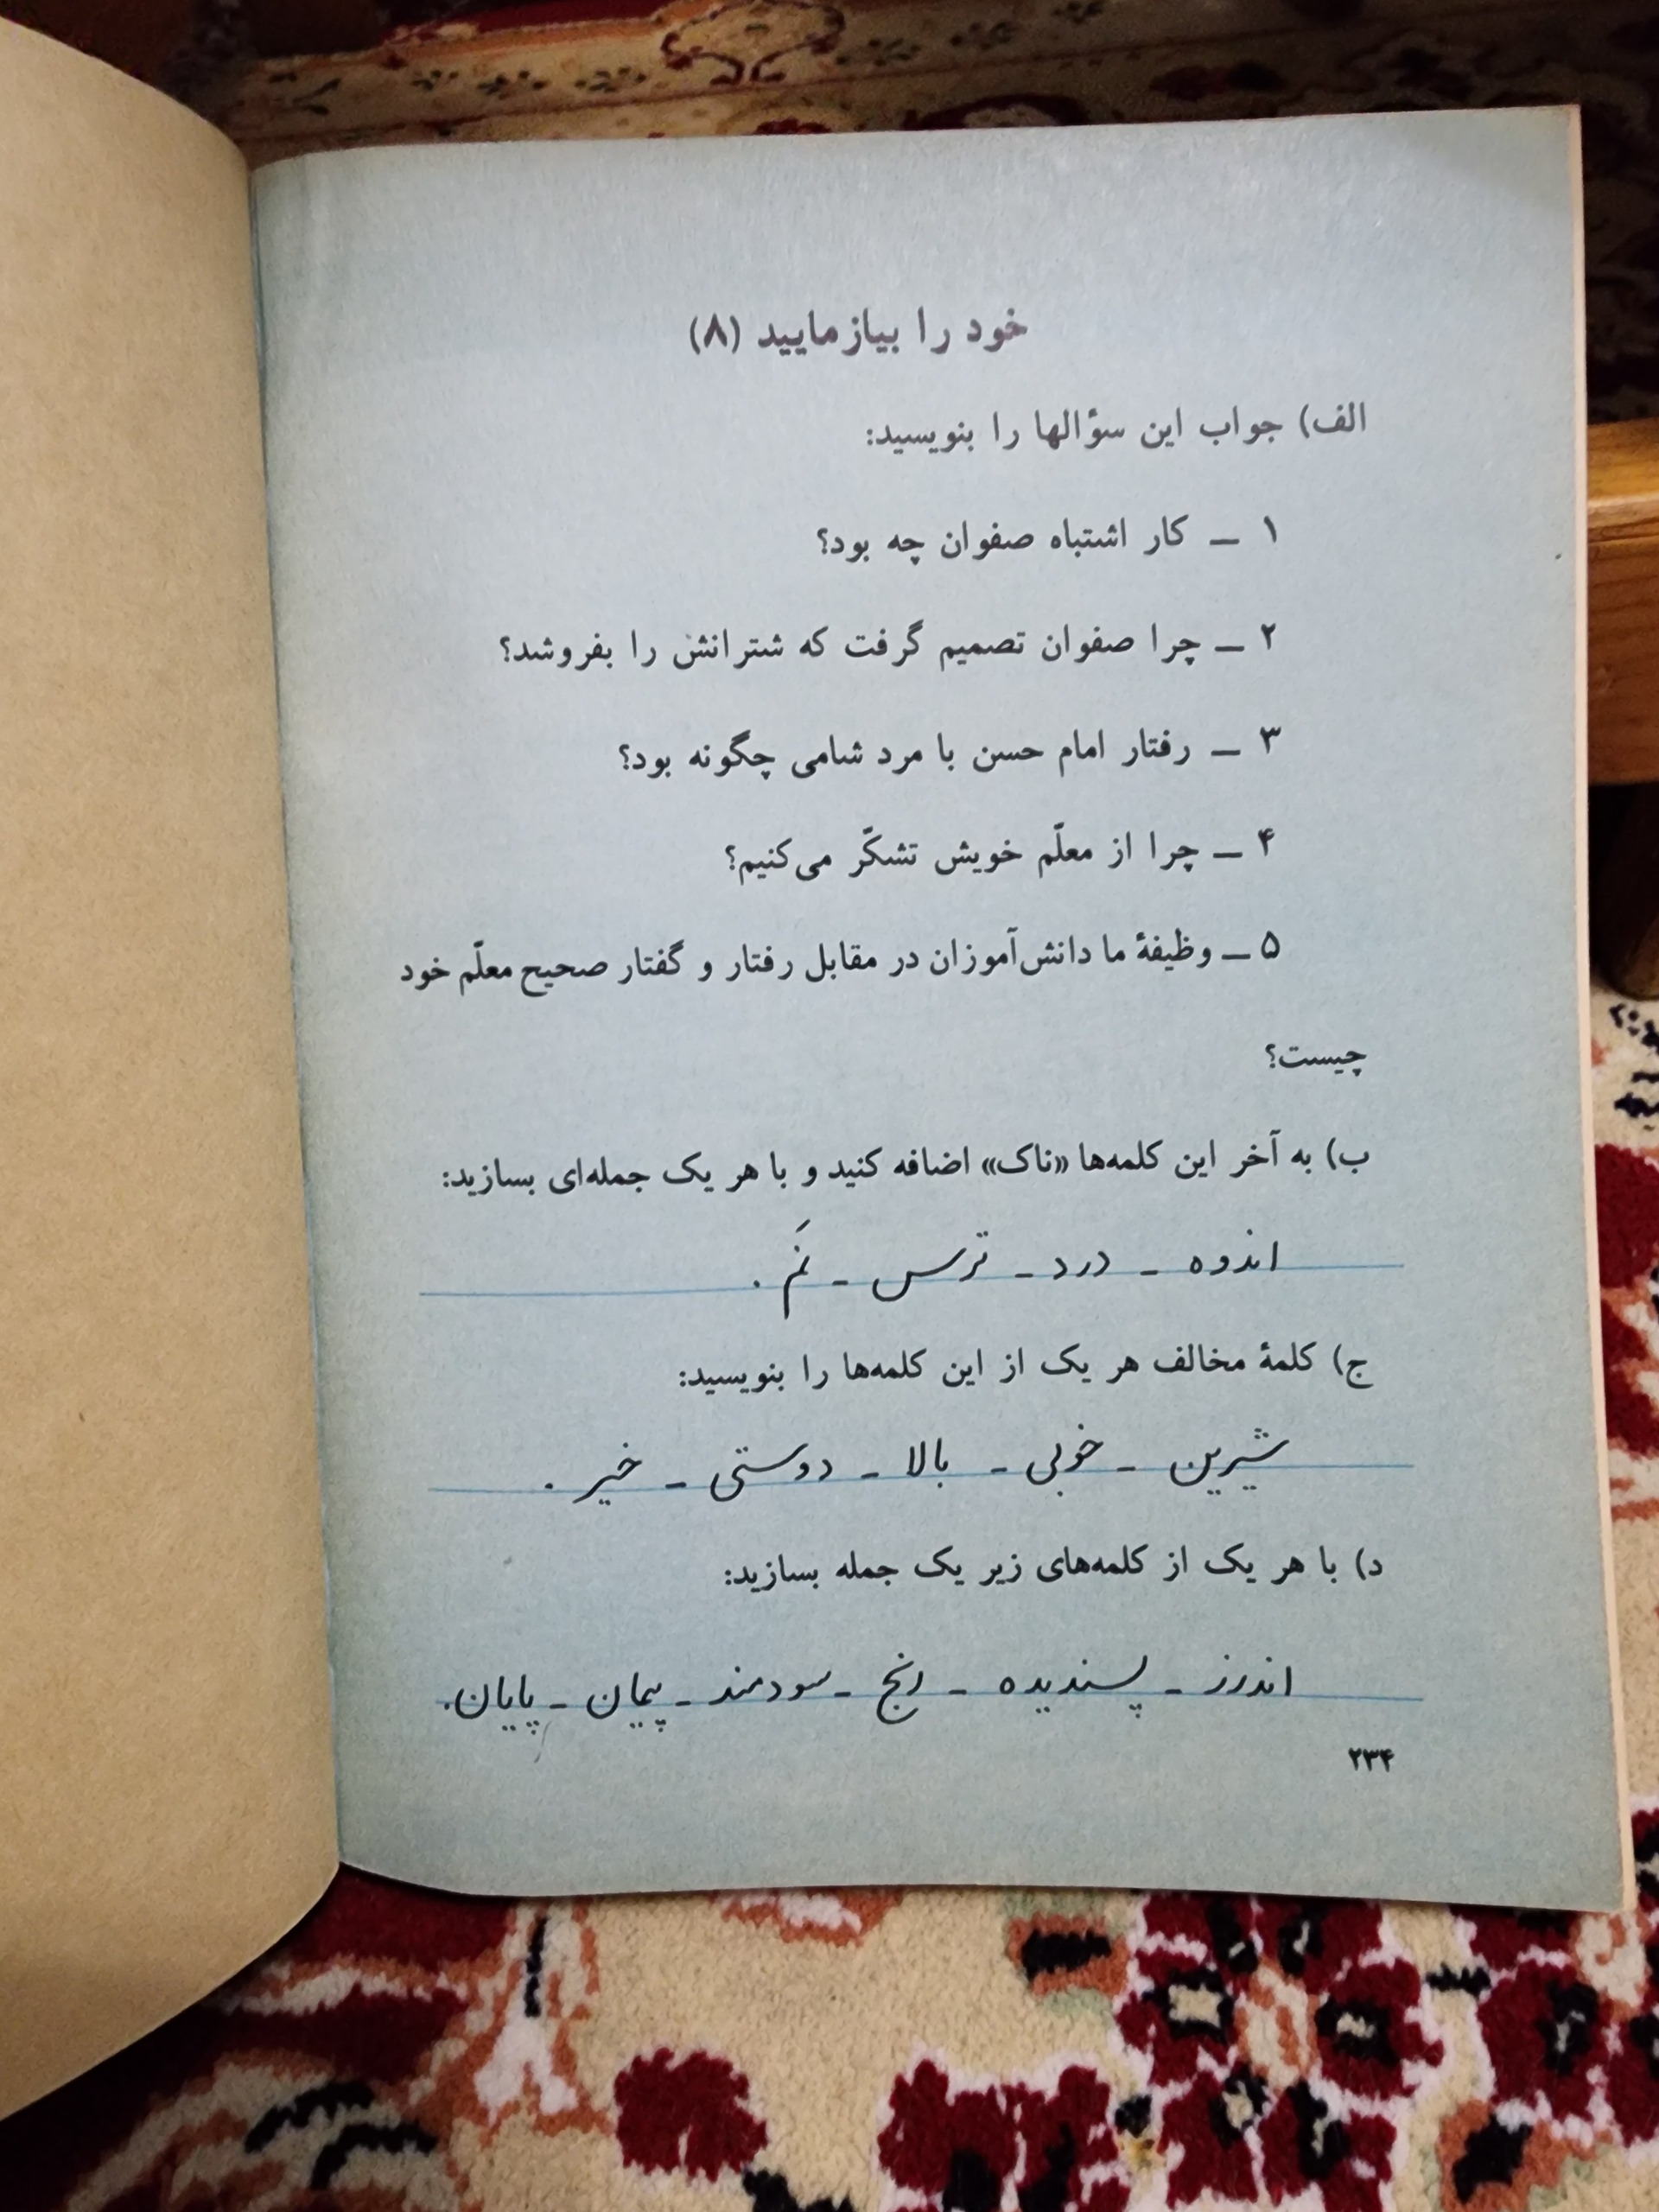 خود را بیازمایید (۸)
الف) جواب این سؤالها را بنویسید:
۱ ـ کار اشتباه صفوان چه بود؟
۲ ـ چرا صفوان تصمیم گرفت که شترانش را بفروشد؟
۳ ـ رفتار امام حسن با مرد شامی چگونه بود؟
۴ ـ چرا از معلّم خویش تشکّر می‌کنیم؟
۵ ـ وظیفهٔ ما دانش‌آموزان در مقابل رفتار و گفتار صحیح معلّم خود
چیست؟
ب) به آخر این کلمه‌ها «ناک» اضافه کنید و با هر یک جمله‌ای بسازید:
اندوه ـ درد ـ ترس ـ نَم .
ج) کلمهٔ مخالف هر یک از این کلمه‌ها را بنویسید:
شیرین ـ خوبی ـ بالا ـ دوستی ـ خیر .
د) با هر یک از کلمه‌های زیر یک جمله بسازید:
اندرز ـ پسندیده ـ رنج ـ سودمند ـ پیمان ـ پایان.
۲۳۴